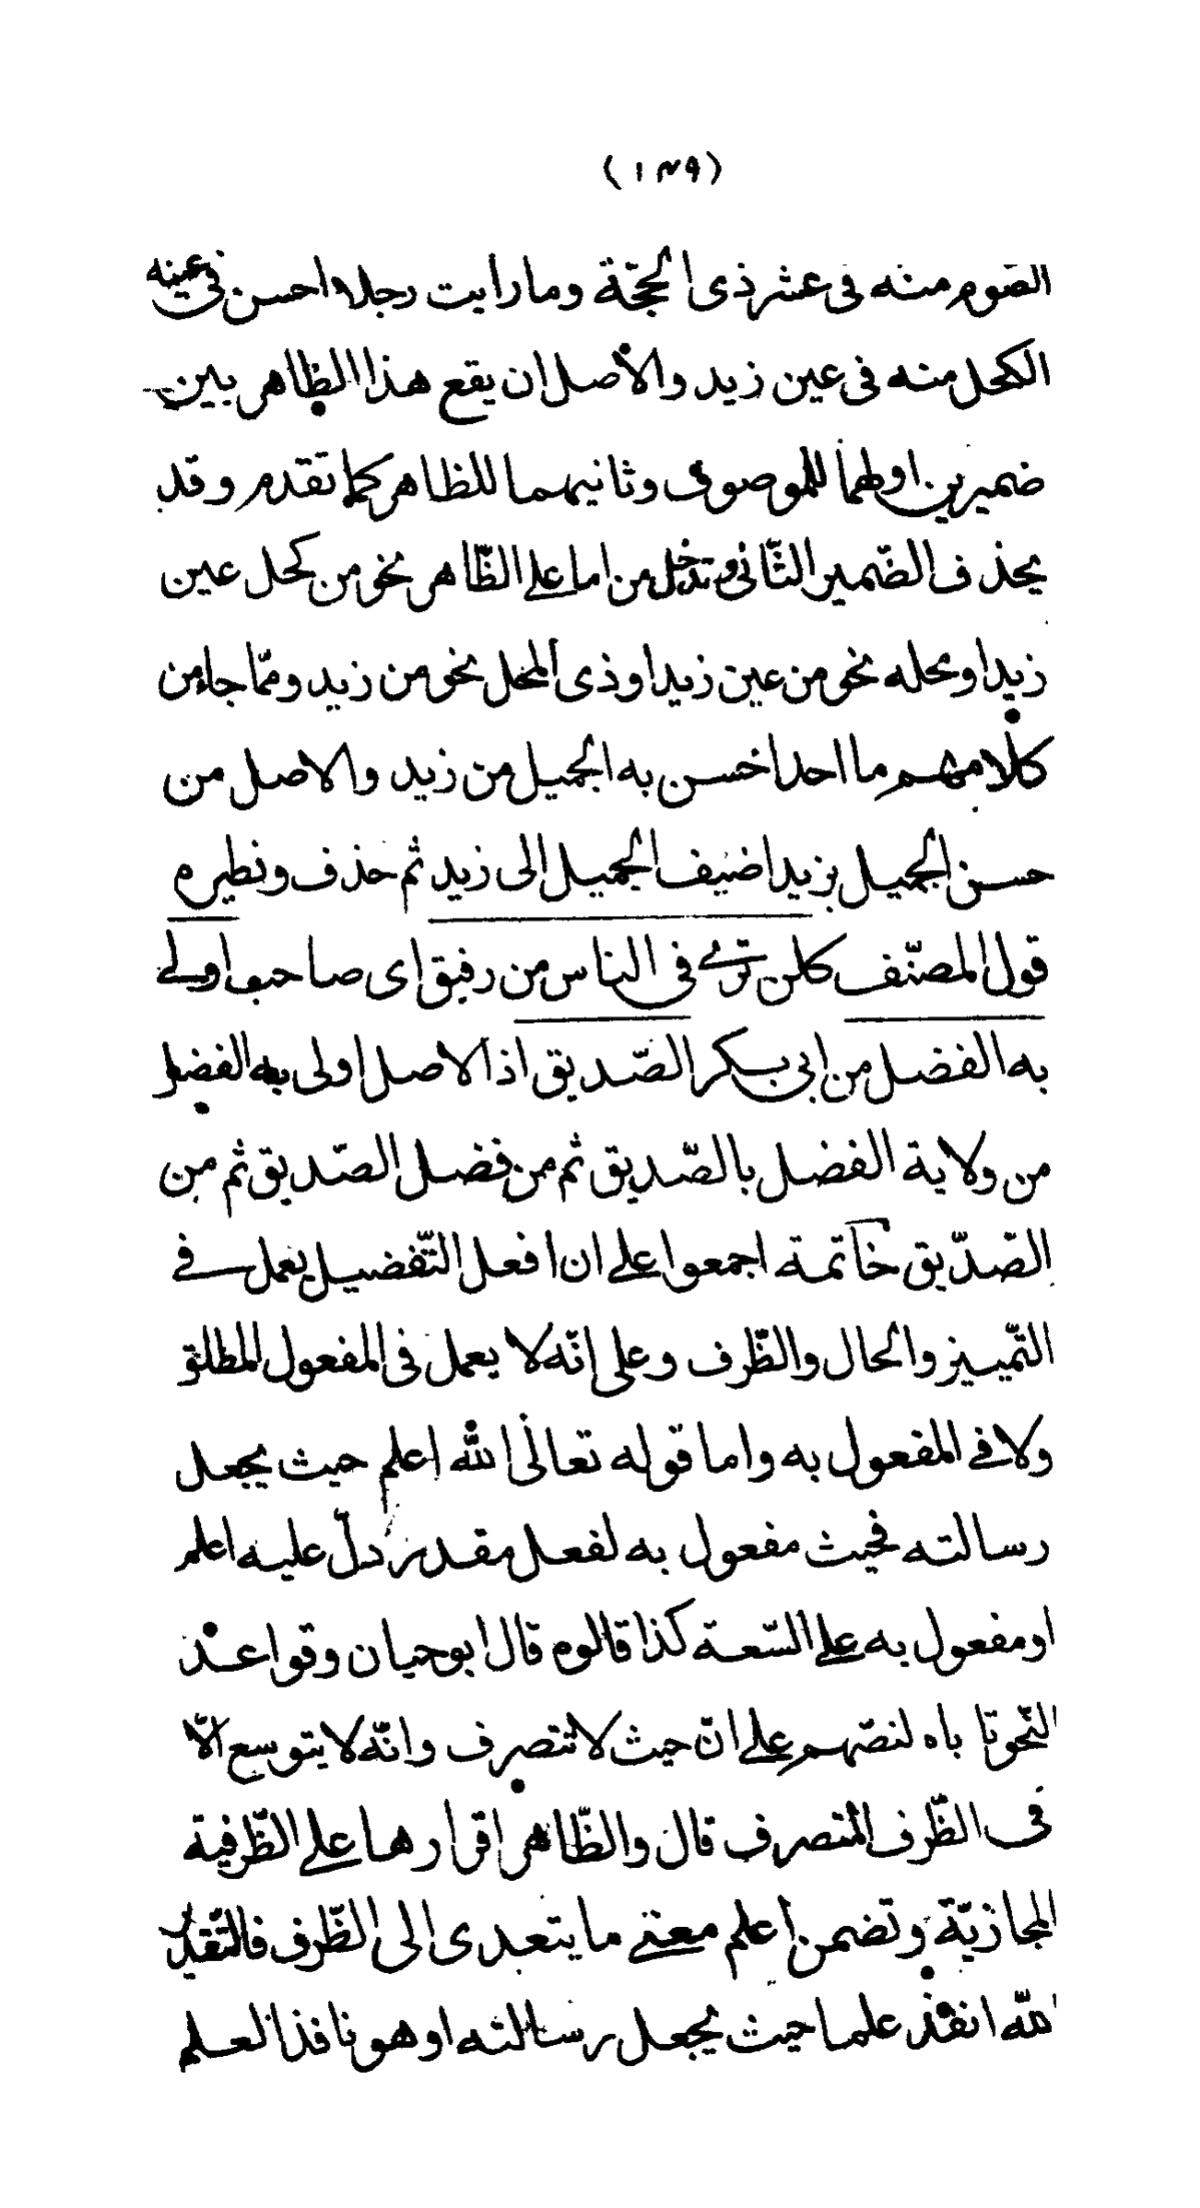 (١٤٩)
الصّوم منه فى عشر ذى الحجّة وما رايت رجلا احسن فى عينه
الكحل منه فى عين زيد والأصل ان يقع هذا الظاهر بين
ضميرين اولهما للموصوف وثانيهما للظاهر كما تقدم وقد
يحذف الضّمير الثّانى وتدخل من اما على الظّاهر نحو من كحل عين
زيد او محله نحو من عين زيد او ذى المحل نحو من زيد وممّا جاء من
كلامهم ما احد احسن به الجميل من زيد والاصل من
حسن الجميل بزيد اضيف الجميل الى زيد ثم حذف ونظيره
قول المصنّف كلن ترى فى الناس من رفيق اى صاحب اولى
به الفضل من ابى بكر الصّديق اذ الاصل اولى به الفضل
من ولاية الفضل بالصّديق ثم من فضل الصّديق ثم من
الصّدّيق خاتمة اجمعوا على ان افعل التّفضيل يعمل فى
التّمييز والحال والظّرف وعلى انّه لا يعمل فى المفعول المطلق
ولا فى المفعول به واما قوله تعالى الله اعلم حيث يجعل
رسالته فحيث مفعول به لفعل مقدر دلّ عليه اعلم
او مفعول به على السّعة كذا قالوه قال ابو حيان وقواعد
النّحو تاباه لنصّهم على انّ حيث لا تتصرف وانّه لا يتوسع الّا
فى الظّرف المتصرف قال والظّاهر اقرارها على الظّرفية
المجازيّة وتضمن اعلم معنى ما يتعدى الى الظّرف فالتّقدير
الله انفذ علما حيث يجعل رسالته او هو نافذ العلم